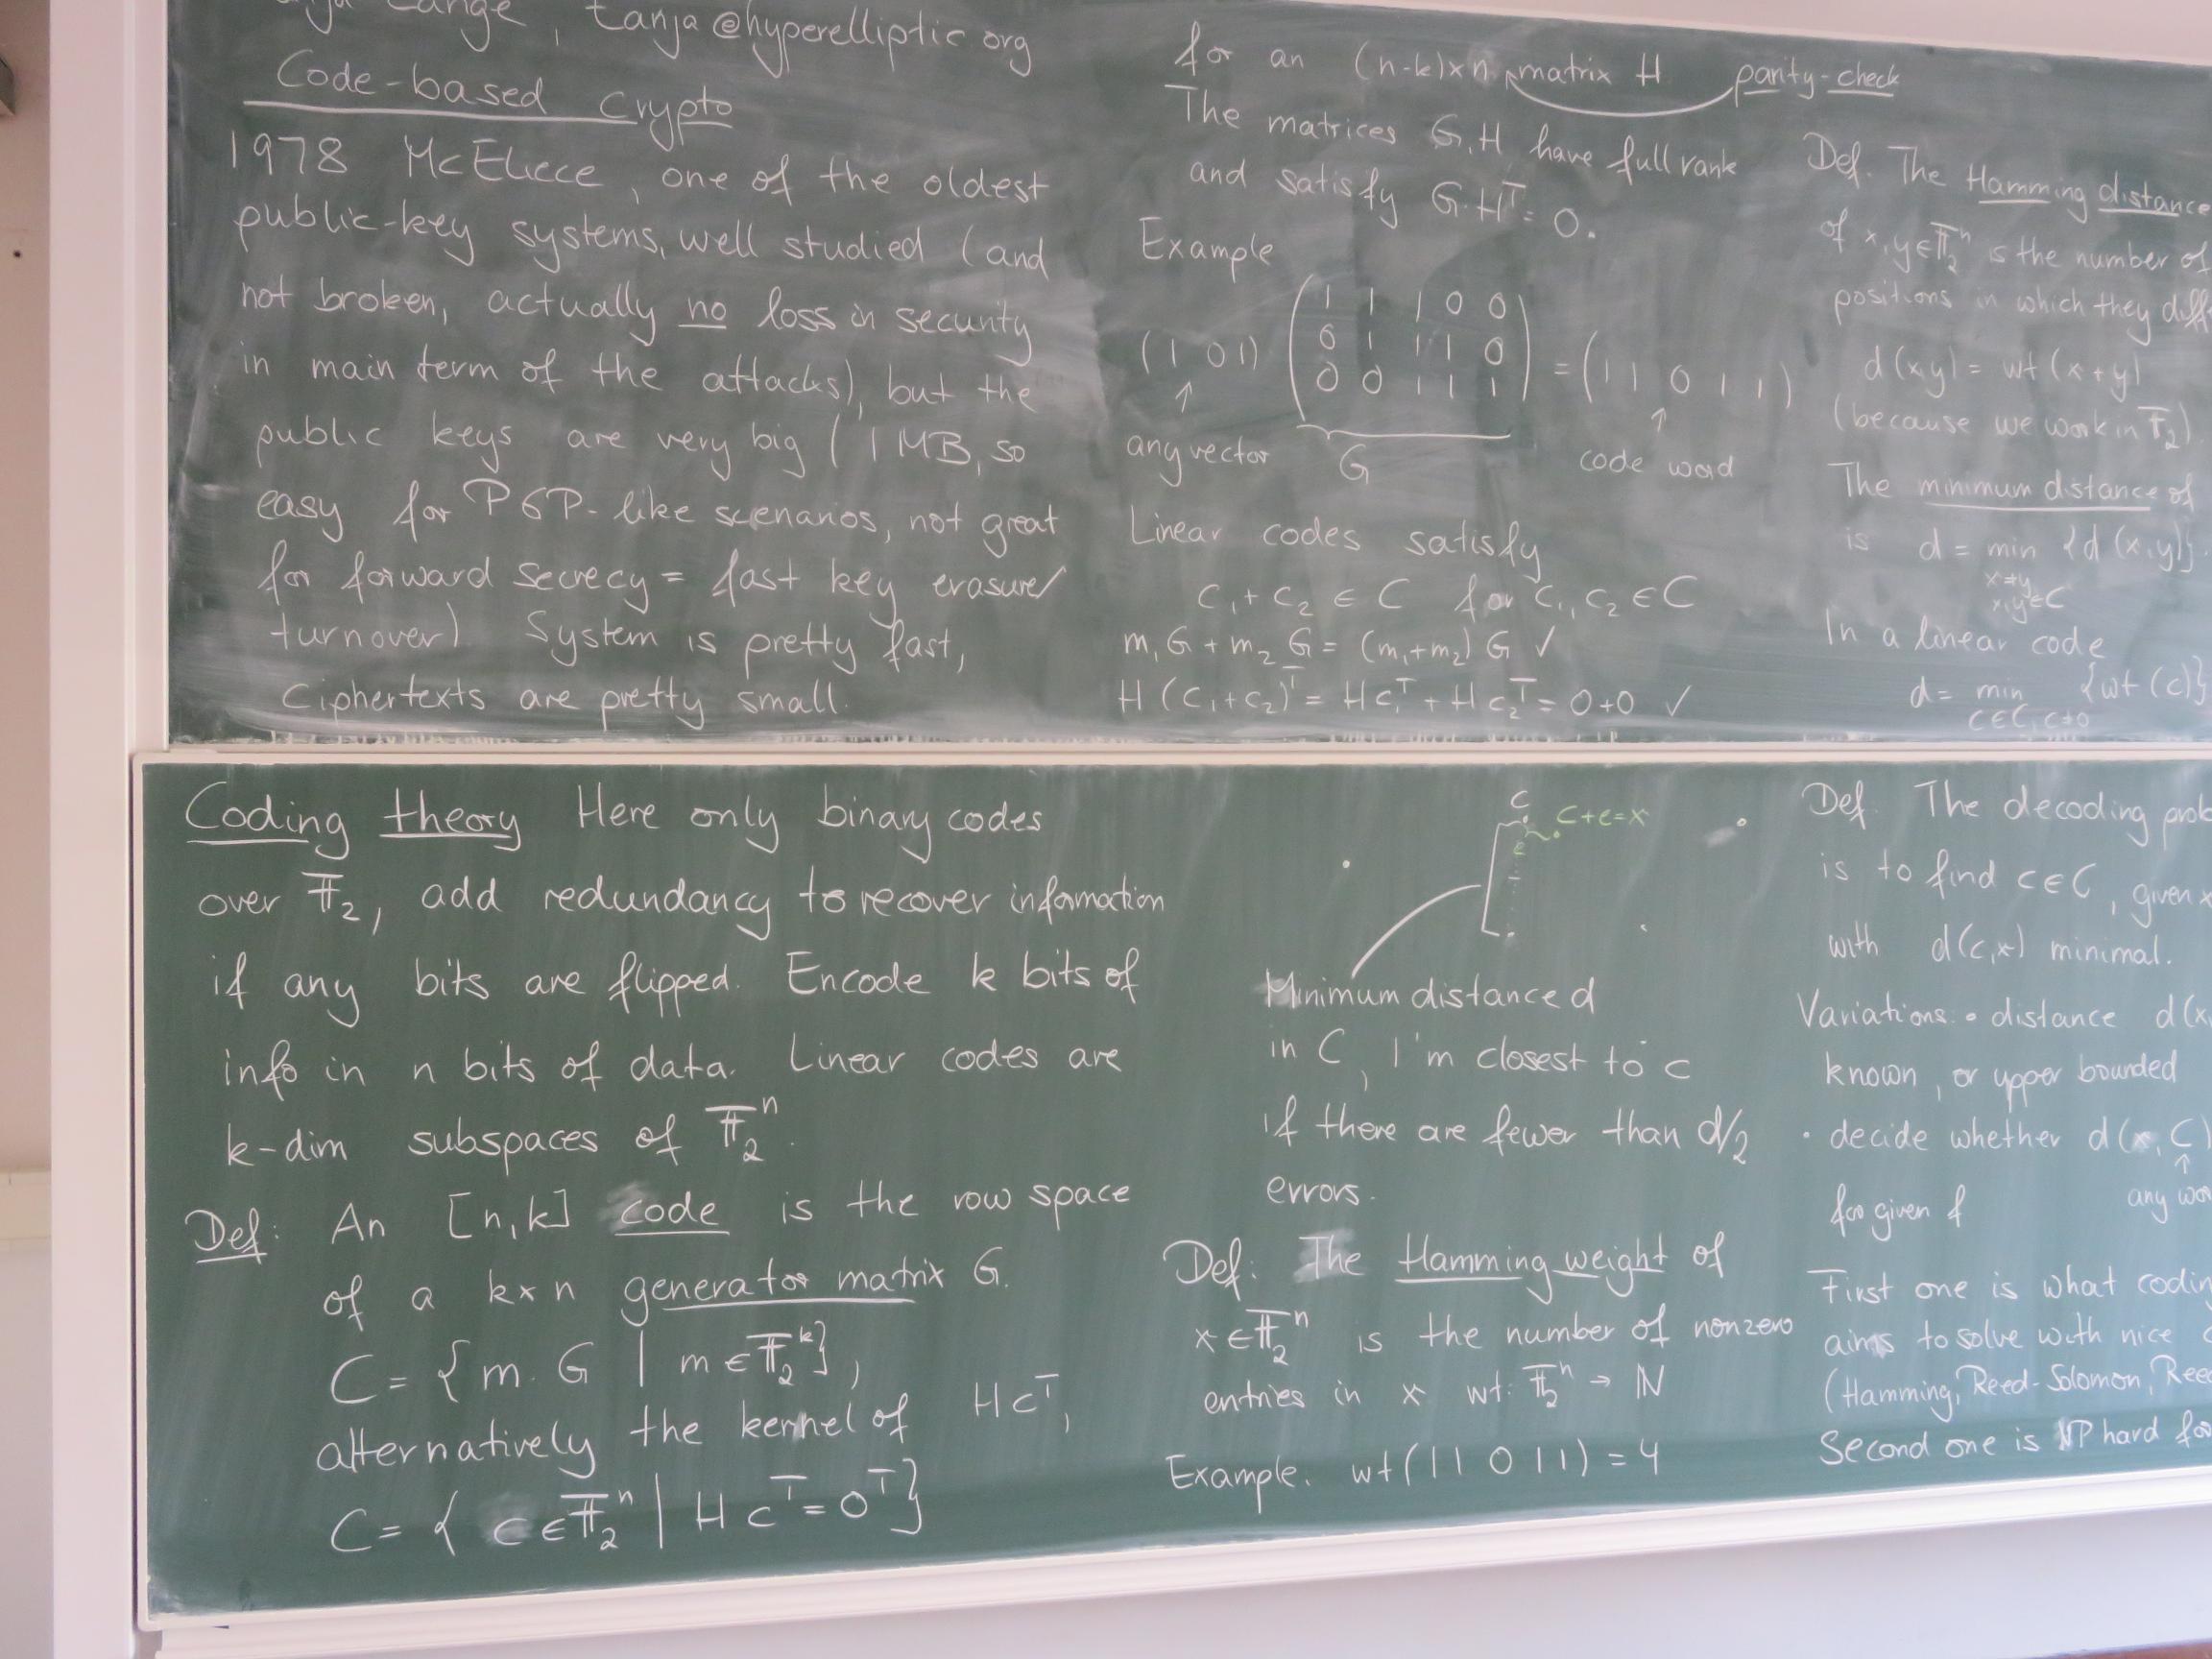 Lange, tanja@hyperelliptic.org
Code-based Crypto
1978 McEliece, one of the oldest
public-key systems, well studied (and
not broken, actually no loss in security
in main term of the attacks), but the
public keys are very big (1MB, so
easy for PGP-like scenarios, not great
for forward secrecy = fast key erasure/
turnover) System is pretty fast,
ciphertexts are pretty small.
Coding theory Here only binary codes
over 𝔽₂, add redundancy to recover information
if any bits are flipped. Encode k bits of
info in n bits of data. Linear codes are
k-dim subspaces of 𝔽₂ⁿ.
Def: An [n,k] code is the row space
of a k×n generator matrix G.
C = {m·G | m∈𝔽₂ᵏ},
alternatively the kernel of Hcᵀ,
C = { c∈𝔽₂ⁿ | Hcᵀ=0ᵀ}
for an (n-k)×n matrix H parity-check
The matrices G,H have full rank
and satisfy G·Hᵀ = 0.
Example
1 1 1 0 0
(1 0 1) 0 1 1 1 0 = (1 1 0 1 1)
0 0 1 1 1
↑ ↑
any vector G code word
Linear codes satisfy
c₁ + c₂ ∈ C for c₁, c₂ ∈ C
m₁G + m₂G = (m₁+m₂) G ✓
H(c₁+c₂)ᵀ = Hc₁ᵀ + Hc₂ᵀ = 0+0 ✓
c
c+e=x
e
Minimum distance d
in C, I'm closest to c
if there are fewer than d/2
errors.
Def: The Hamming weight of
x∈𝔽₂ⁿ is the number of nonzero
entries in x wt: 𝔽₂ⁿ → ℕ
Example. wt(11011) = 4
Def. The Hamming distance
of x,y∈𝔽₂ⁿ is the number of
positions in which they
d(x,y) = wt(x+y)
(because we work in 𝔽₂).
The minimum distance of
is d = min {d(x,y)}
x≠y
x,y∈C
In a linear code
d = min {wt(c)}
c∈C, c≠0
Def. The decoding
is to find c∈C, given x
with d(c,x) minimal.
Variations • distance d(x,
known, or upper bounded
• decide whether d(x,C)
↑
for given f any
First one is what coding
aims to solve with nice
(Hamming, Reed-Solomon, Reed
Second one is NP hard for